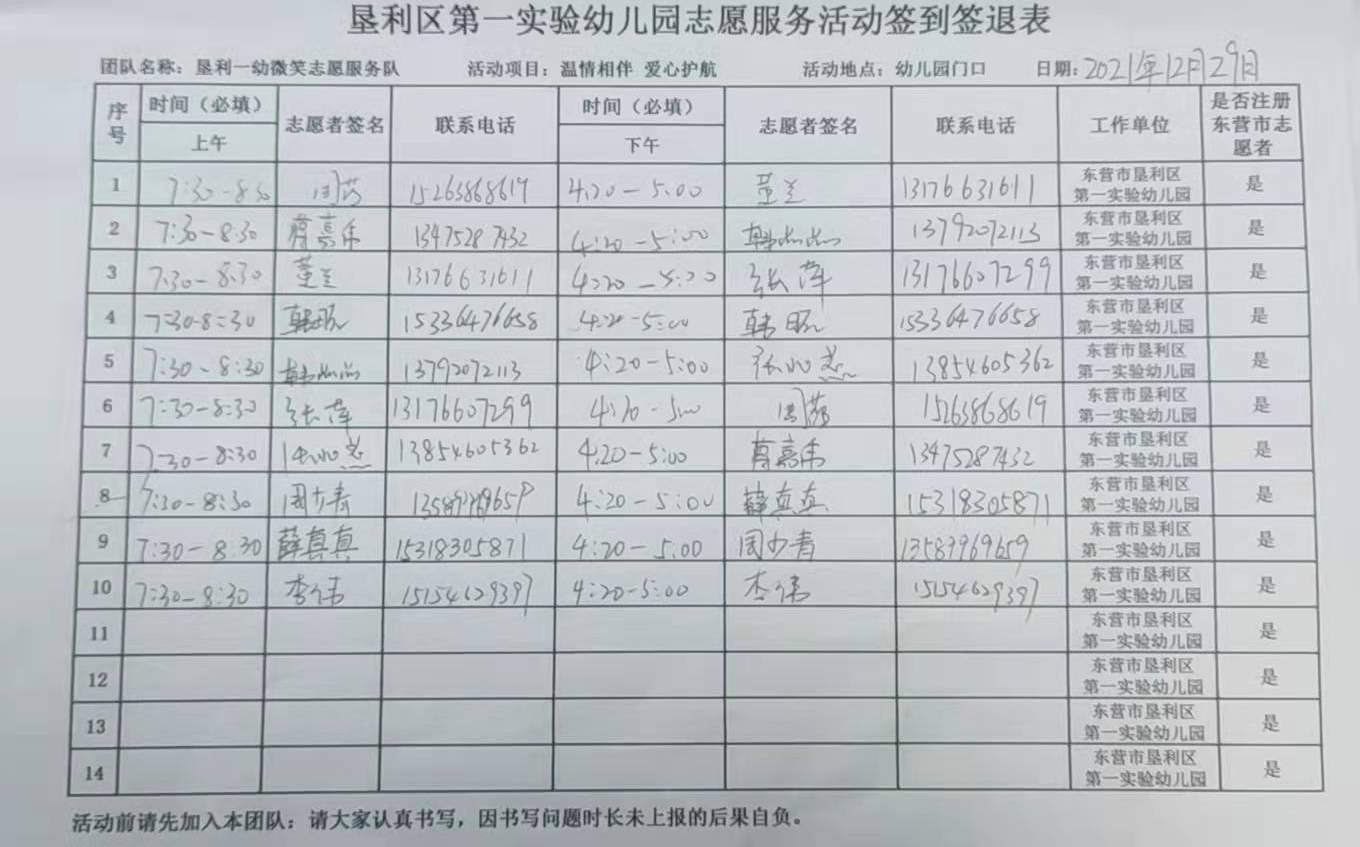 垦利区第一实验幼儿园志愿服务活动签到签退表
团队名称：垦利一幼微笑志愿服务队 活动项目：温情相伴 爱心护航 活动地点：幼儿园门口 日期：2021年12月29日
序号 时间（必填） 志愿者签名 联系电话 时间（必填） 志愿者签名 联系电话 工作单位 是否注册东营市志愿者
上午 下午
1 7:30-8:30 15263868619 4:20-5:00 董兰 13176631611 东营市垦利区第一实验幼儿园 是
2 7:30-8:30 蔡嘉伟 13475287432 4:20-5:00 13792072113 东营市垦利区第一实验幼儿园 是
3 7:30-8:30 董兰 13176631611 4:20-5:00 张萍 13176607299 东营市垦利区第一实验幼儿园 是
4 7:30-8:30 15336476658 4:20-5:00 15336476658 东营市垦利区第一实验幼儿园 是
5 7:30-8:30 13792072113 4:20-5:00 13854605362 东营市垦利区第一实验幼儿园 是
6 7:30-8:30 张萍 13176607299 4:20-5:00 15263868619 东营市垦利区第一实验幼儿园 是
7 7:30-8:30 13854605362 4:20-5:00 蔡嘉伟 13475287432 东营市垦利区第一实验幼儿园 是
8 7:30-8:30 周少青 4:20-5:00 薛真真 15318305871 东营市垦利区第一实验幼儿园 是
9 7:30-8:30 薛真真 15318305871 4:20-5:00 周少青 13583969659 东营市垦利区第一实验幼儿园 是
10 7:30-8:30 李伟 15154629397 4:20-5:00 李伟 15154629397 东营市垦利区第一实验幼儿园 是
11 东营市垦利区第一实验幼儿园 是
12 东营市垦利区第一实验幼儿园 是
13 东营市垦利区第一实验幼儿园 是
14 东营市垦利区第一实验幼儿园 是
活动前请先加入本团队：请大家认真书写，因书写问题时长未上报的后果自负。